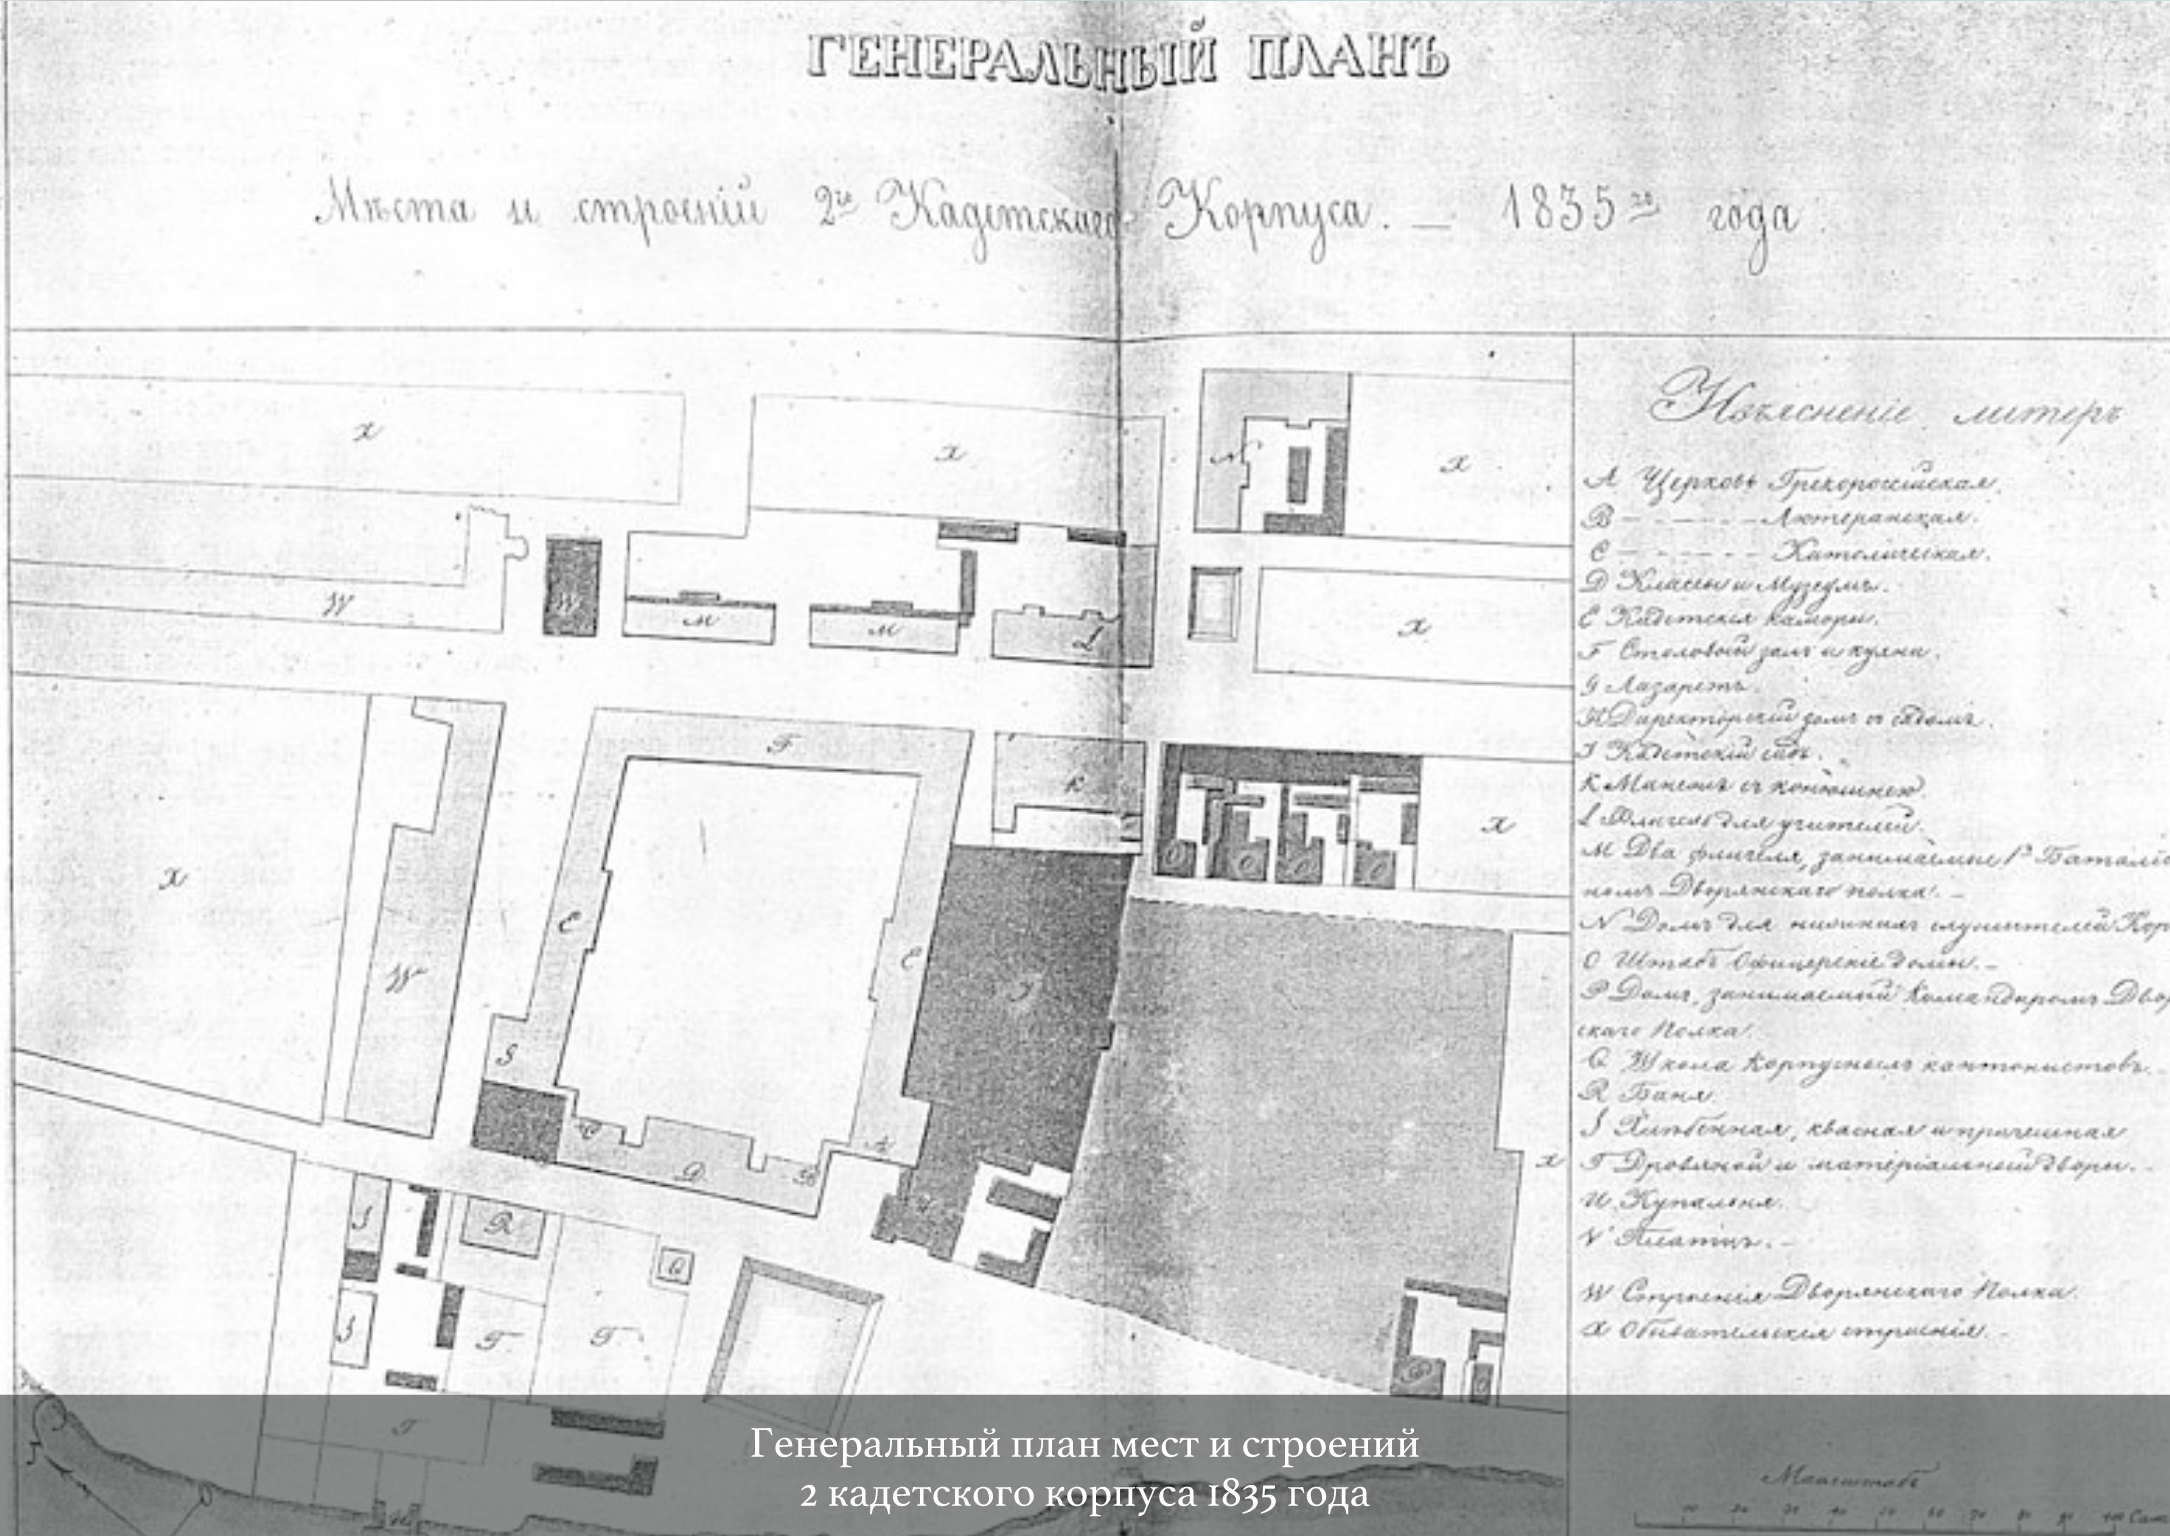 ГЕНЕРАЛЬНЫЙ ПЛАНЪ
Мѣста и строеній 2го Кадетскаго Корпуса. — 1835го года
Изъясненіе литеръ
A Церковь Грекороссійская.
B — - — - — Лютеранская.
C — - - - - — Католическая.
D Классы и Музеумъ.
E Кадетскія каморы.
F Столовый залъ и кухня.
G Лазаретъ.
H Директорскій домъ съ садомъ.
I Кадетскій садъ.
K Манежъ съ конюшнею.
L Флигель для учителей.
M Два флигеля, занимаемые 1мъ Баталіо
номъ Дворянскаго полка. —
N Домъ для нижнихъ служителей Кор
O Штабъ Офицерскіе домы. —
P Домъ, занимаемый Командиромъ Двор
скаго Полка.
Q Школа Корпусныхъ кантонистовъ. —
R Баня.
S Хлѣбенная, квасная и прачешная
T Дровяной и матеріальный дворы. —
U Купальня.
V Плацъ. —
W Строенія Дворянскаго Полка.
X Обывательскія строенія. —
X
X
N
X
W
W
M
M
L
X
F
K
X
O
O
O
O
X
W
E
E
I
S
C
D
B
A
H
X
S
R
Q
S
T
T
P
O
T
Масштабъ
10 20 30 40 50 60 70 80 90 100 Саж.
Генеральный план мест и строений
2 кадетского корпуса 1835 года